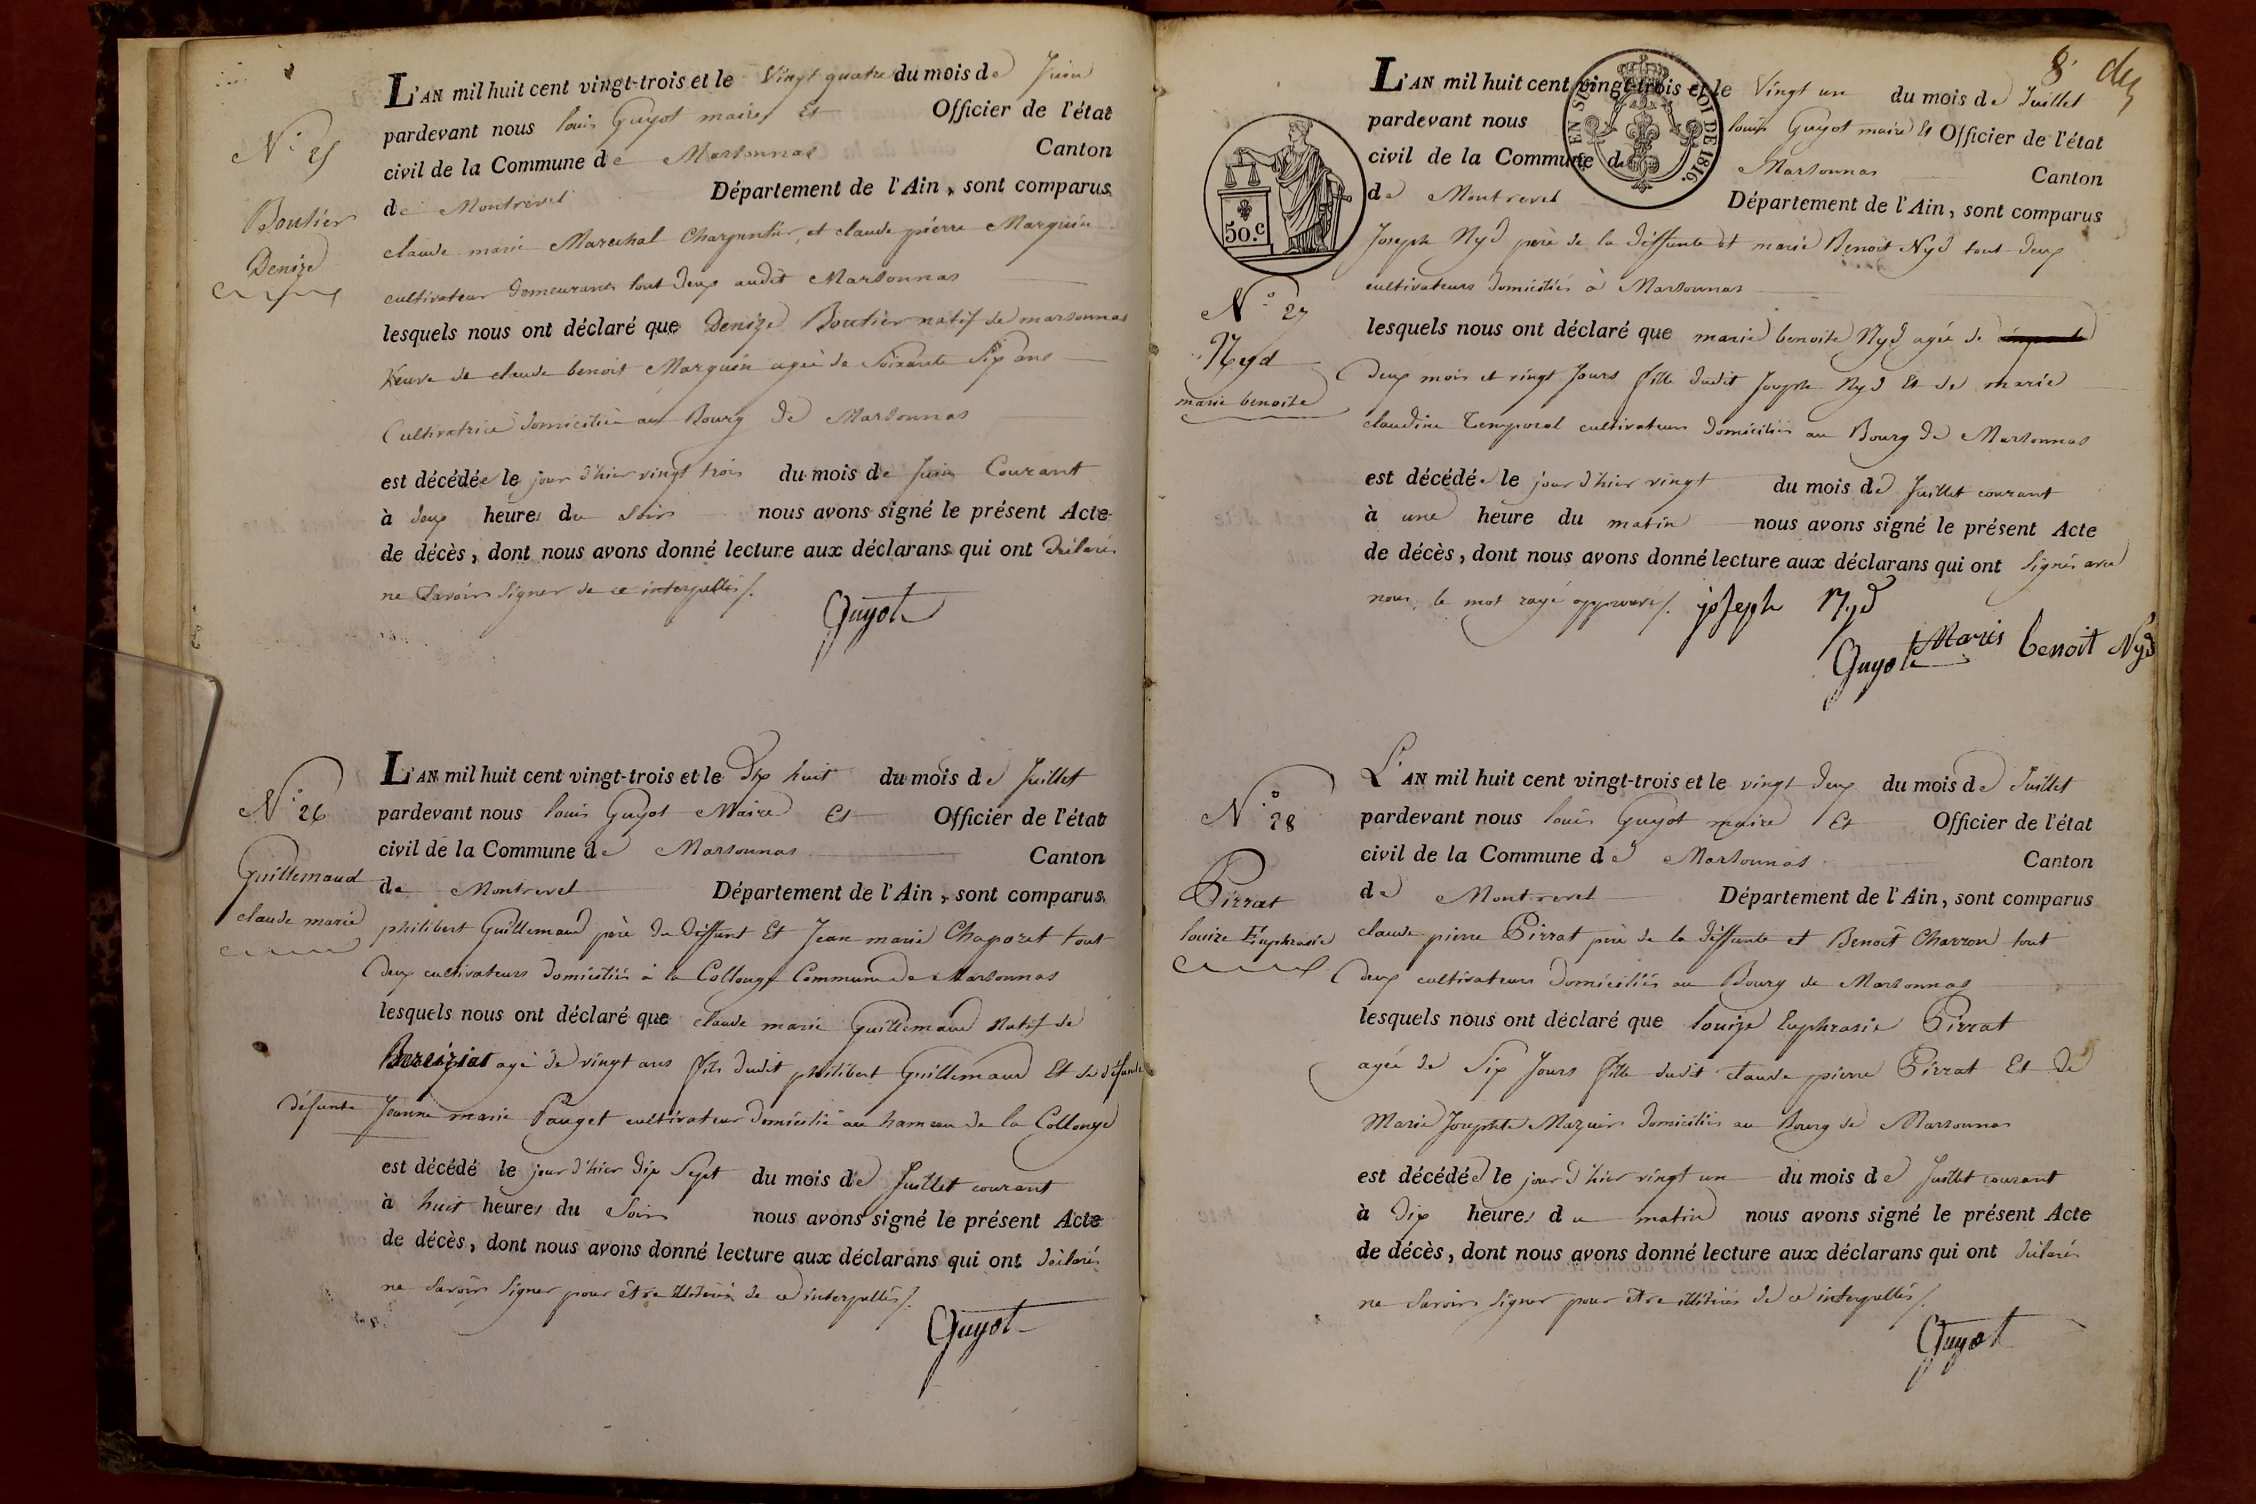 N.° 25
Boutier
Denize
L'AN mil huit cent vingt-trois et le Vingt quatre du mois de Juin
pardevant nous louis Guyot maire Et Officier de l'état
civil de la Commune de Marsonnas Canton
de Montrevel Département de l'Ain, sont comparus
claude marie Marechal Charpentier, et claude pierre Marguin
cultivateur demeurants tout deux audit Marsonnas
lesquels nous ont déclaré que Denize Boutier natif de marsonnas
veuve de claude benoit Marguin agée de Soixante Six ans
Cultivatrice domiciliée au Bourg de Marsonnas
est décédée le jour d'hier vingt trois du mois de Juin Courant
à deux heures du Soir nous avons signé le présent Acte
de décès, dont nous avons donné lecture aux déclarans qui ont déclarés
ne Savoir Signer de ce interpellés/.
Guyot
N.° 26
Guillemaud
claude marie
L'AN mil huit cent vingt-trois et le Dix huit du mois de Juillet
pardevant nous louis Guyot Maire Et Officier de l'état
civil de la Commune de Marsonnas Canton
de Montrevel Département de l'Ain, sont comparus
philibert Guillemaud père du deffunt Et Jean marie Chaporet tout
deux cultivateurs domiciliés à la Collonge Commune de Marsonnas
lesquels nous ont déclaré que claude marie Guillemaud Natif de
agé de vingt ans fils dudit philibert Guillemaud Et de défunte
défunte Jeanne marie Pauget cultivateur domicilié au hameau de la Collonge
est décédé le jour d'hier dix Sept du mois de Juillet courant
à huit heures du Soir nous avons signé le présent Acte
de décès, dont nous avons donné lecture aux déclarans qui ont déclarés
ne Savoir Signer pour être illitérés de ce interpellés/.
Guyot
8.e
50.c
LOI DE 1816.
L'AN mil huit cent vingt-trois et le Vingt un du mois de Juillet
pardevant nous louis Guyot maire Et Officier de l'état
civil de la Commune de Marsonnas Canton
de Montrevel Département de l'Ain, sont comparus
Joseph Nyd père de la deffunte et marie Benoit Nyd tout deux
cultivateurs domiciliés à Marsonnas
N.° 27
Neyd
marie benoite
lesquels nous ont déclaré que marie benoite Nyd agée de
deux mois et vingt Jours fille dudit Joseph Nyd Et de marie
claudine Temporal cultivateurs domiciliés au Bourg de Marsonnas
est décédée le jour d'hier vingt du mois de Juillet courant
à une heure du matin nous avons signé le présent Acte
de décès, dont nous avons donné lecture aux déclarans qui ont Signés avec
nous, le mot rayé approuvé/. joseph Nyd
Guyot Marie benoit Nyd
N.° 28
Pirrat
louize Euphrasie
L'AN mil huit cent vingt-trois et le vingt deux du mois de Juillet
pardevant nous louis Guyot maire Et Officier de l'état
civil de la Commune de Marsonnas Canton
de Montrevel Département de l'Ain, sont comparus
claude pierre Pirrat père de la deffunte et Benoît Charron tout
deux cultivateurs domiciliés au Bourg de Marsonnas
lesquels nous ont déclaré que louize Euphrasie Pirrat
agée de Six Jours fille dudit claude pierre Pirrat Et de
Marie Josephte Mazuir domiciliés au Bourg de Marsonnas
est décédée le jour d'hier vingt un du mois de Juillet courant
à dix heures du matin nous avons signé le présent Acte
de décès, dont nous avons donné lecture aux déclarans qui ont déclarés
ne Savoir Signer pour être illitérés de ce interpellés/.
Guyot